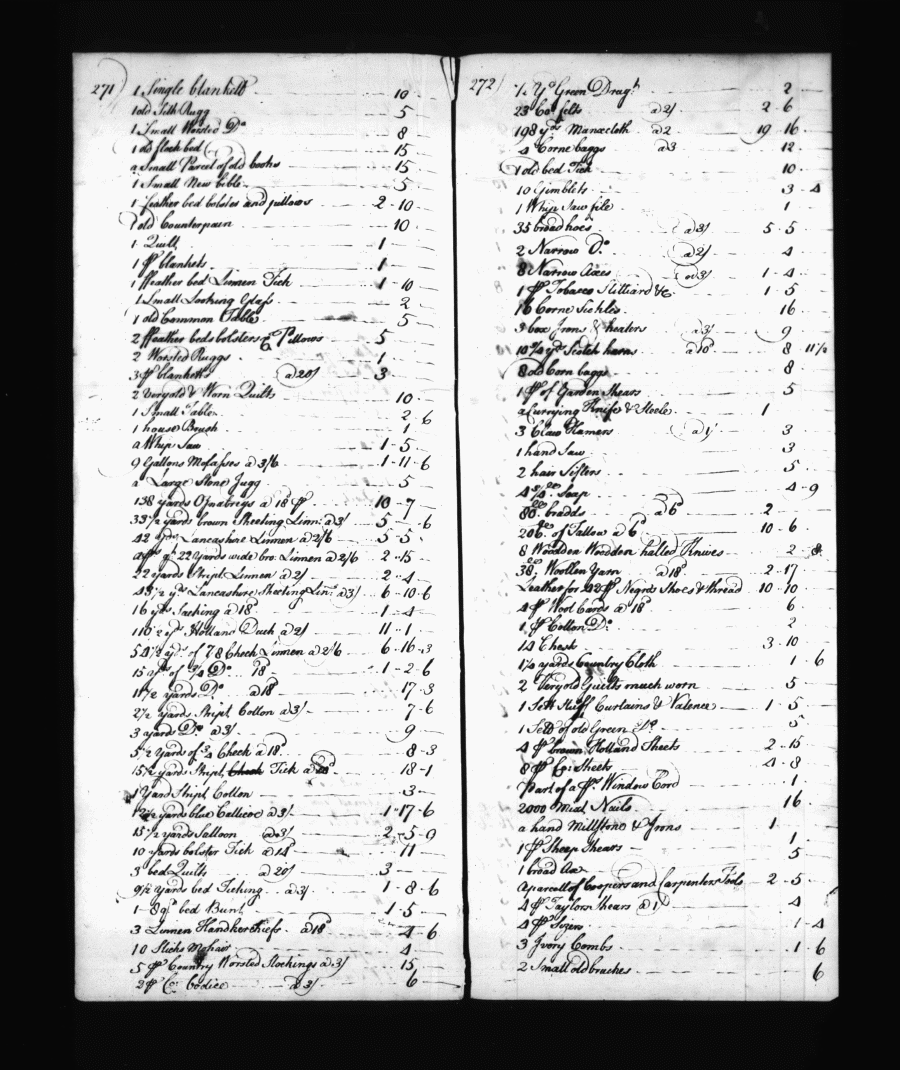 271) 1 Single blankett 10
1 old Silk Rugg 5
1 Small Worsted Do 8
1 do flock bed 15
a Small Parcel of old books 15
1 Small New bible 5
1 feather bed bolster and pillows 2 - 10
1 old Counterpain 10
1 Quilt 1
1 pr blankets 1
1 ffeather bed Linnen Tick 1 - 10
1 Small Looking Glass 2
1 old Common Table 5
2 ffeather beds bolsters & Pillows 5
2 Worsted Ruggs 1
3 pr blanketts a 20/ 3
2 very old & Worn Quilts 10
1 Small Table 2 6
1 house Brush 1
a Whip Saw 1 - 5
9 Gallons Molasses a 3/6 1 - 11 - 6
a Large Stone Jugg 5
138 yards Oznabrigs a 18d pr 10 - 7
33 1/2 yards brown Sheeting Linn: a 3/ 5 6
42 yds Lancashire Linnen a 2/6 5 - 5
22 yards wide bro: Linnen a 2/6 2 - 15
22 yards Stript Linnen a 2/ 2 - 4
43 1/2 yds Lancashire Sheeting Lin: a 3/ 6 - 10 - 6
16 yds Sacking a 18d 1 - 4
110 1/2 yds Holland Duck a 2/ 11 - 1
54 1/2 yds of 7/8 Check Linnen a 2/6 6 - 16 - 3
15 of 3/4 Do 18d 1 - 2 - 6
11 1/2 yards Do a 18d 17 - 3
2 1/2 yards Stript Cotton a 3/ 7 - 6
3 yard Do a 3/ 9
5 1/2 Yards of 3/4 Check a 18d 8 - 3
15 1/2 yards Stript Check Tick a 18 - 1
1 Yard Stript Cotton 3
12 1/2 yards blue Callicoe a 3/ 1 - 17 - 6
15 1/2 yards Salloon a 3/ 2 - 5 - 9
10 yards bolster Tick a 14d 11
3 bed Quilts a 20/ 3
9 1/2 yards bed Ticking a 3/ 1 - 8 - 6
1 - 8 qr bed Bunt 1 - 5
3 Linnen Handkerchiefs a 18d 4 - 6
10 Sticks Mohair 4
5 pr Country Worsted Stockings a 3/ 15
2 pr Co: bodice a 3/ 6
272) 1 Yd Green Dragt 2
23 felts a 2/ 2 - 6
198 yds Manxcloth a 2 19 - 16
4 Corne baggs a 3 12
1 old bed Tick 10
10 Gimblets 3 4
1 Whip Saw file 1
35 broad hoes a 3/ 5 - 5
2 Narrow Do a 2/ 4
8 Narrow Axes a 3/ 1 - 4
1 pr Tobacco Stilliard &c 1 - 5
16 Corne Sickles 16
3 box Irons & heaters a 3/ 9
10 3/4 yds Scotch harns a 10d 8 11 1/2
8 old Corn baggs 8
1 pr of Garden Shears 5
a Currying Knife & Steele 1
3 Claw Hamers a 1/ 3
1 hand Saw 3
2 hair Sifters 5
Soap 4 - 9
80 lbs bradds a 6d 2
206 lbs of Tallow a 6d 10 - 6
8 Wooden Wooden halled Knives 2 8
38 lbs Woollen Yarn a 18d 2 - 17
Leather for 42 pr Negros Shoes & thread 10 - 10
4 pr Wool Cards a 18d 6
1 pr Cotton Do 2
14 Chests 3 - 10
yards Country Cloth 1 6
2 Very old Quilts much worn 5
1 Sett Stuff Curtains & Valence 1 - 5
1 Sett of old Green Do 5
4 pr brown Holland Sheets 2 - 15
8 pr Co: Sheets 4 - 8
Part of a pr Window Cord 1
2000 Meal Nails 16
a hand Millstone & Irons 1
1 pr Sheep Shears 1
1 broad Axe 5
a parcell of Coopers and Carpenters Tools 2 - 5
4 pr Taylors Shears a 1d 4
4 pr Sizers 1 - 4
3 Ivory Combs 1 6
2 Small old brushes 6